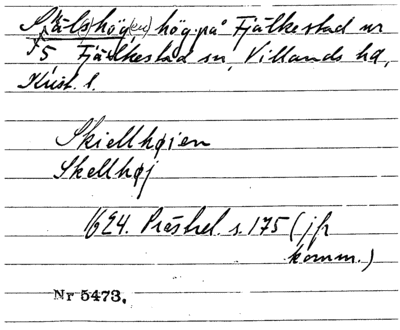 Skälshög(en) hög på Fjälkestad nr
5, Fjälkestad sn, Villands hd,
Krist. l.
Skiellhøien
Skellhøj
1624. Prästrel. s. 175 (jfr
komm.)
Nr 5473.